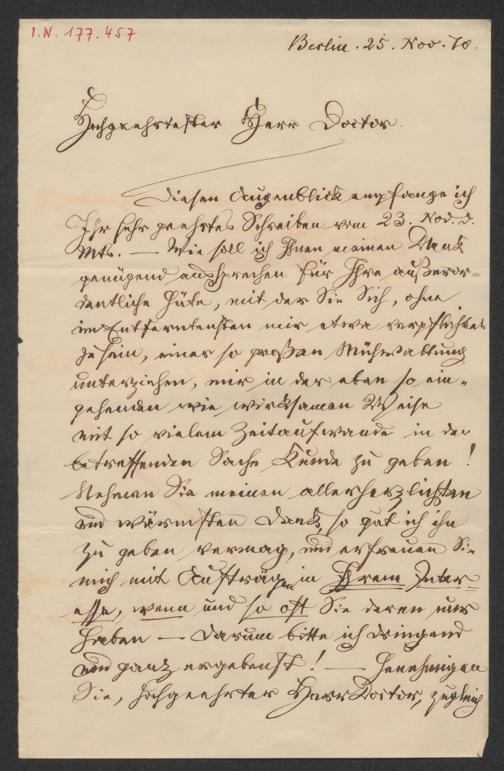 I.N. 177.457
Berlin. 25. Nov. 70.
Hochgeehrtester Herr Doctor.
Diesen Augenblick empfange ich
Ihr sehr geehrtes Schreiben vom 23. Nov. d.
Mts. — Wie soll ich Ihnen meinen Dank
genügend aussprechen für Ihre außeror-
dentliche Güte, mit der Sie Sich, ohne
im Entferntesten mir etwa verpflichtet
zu sein, einer so großen Mühwaltung
unterziehen, mir in der eben so ein-
gehenden wie wirksamen Weise
mit so vielem Zeitaufwande in der
betreffenden Sache Kunde zu geben!
Nehmen Sie meinen allerherzlichsten
und wärmsten Dank, so gut ich ihn
zu geben vermag, und erfreuen Sie
mich mit Aufträgen in Ihrem Inter-
esse, wenn und so oft Sie deren nur
haben — darum bitte ich dringend
und ganz ergebenst! — Genehmigen
Sie, hochgeehrter Herr Doctor, zugleich